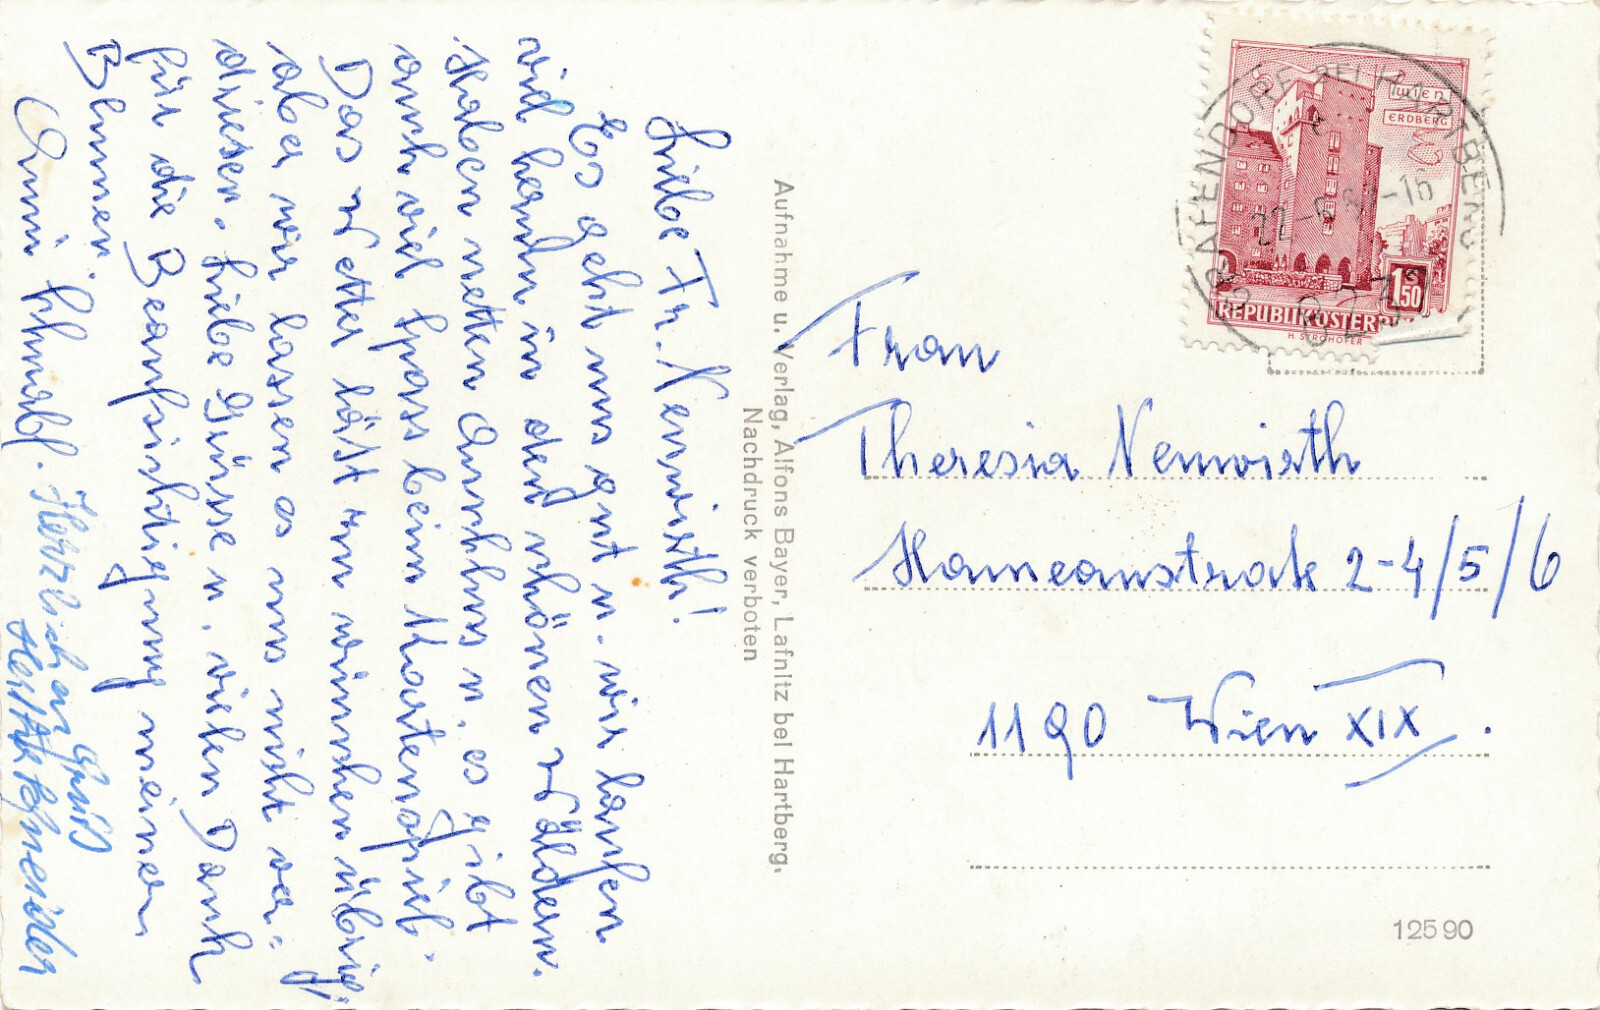 Liebe Fr. Neuwirth!
Es geht uns gut u. wir laufen
viel herum in den schönen Wäldern.
Haben netten Anschluss u. es gibt
auch viel Spass beim Kartenspiel.
Das Wetter läst zu wünschen übrig,
aber wir lassen es uns nicht ver-
driesen. Liebe Grüsse u. vielen Dank
für die Beaufsichtigung meiner
Blumen.
Anni
Herzlichen Gruß
Aufnahme u. Verlag, Alfons Bayer, Lafnitz bei Hartberg.
Nachdruck verboten
WIEN
ERDBERG
1S50
REPUBLIK ÖSTERR
H. STROHOFER
GRAFENDORF BEI HARTBERG
22.-6.6 -16
8232
Frau
Theresia Neuwirth
Hameaustraße 2-4/5/6
1190 Wien XIX.
12590